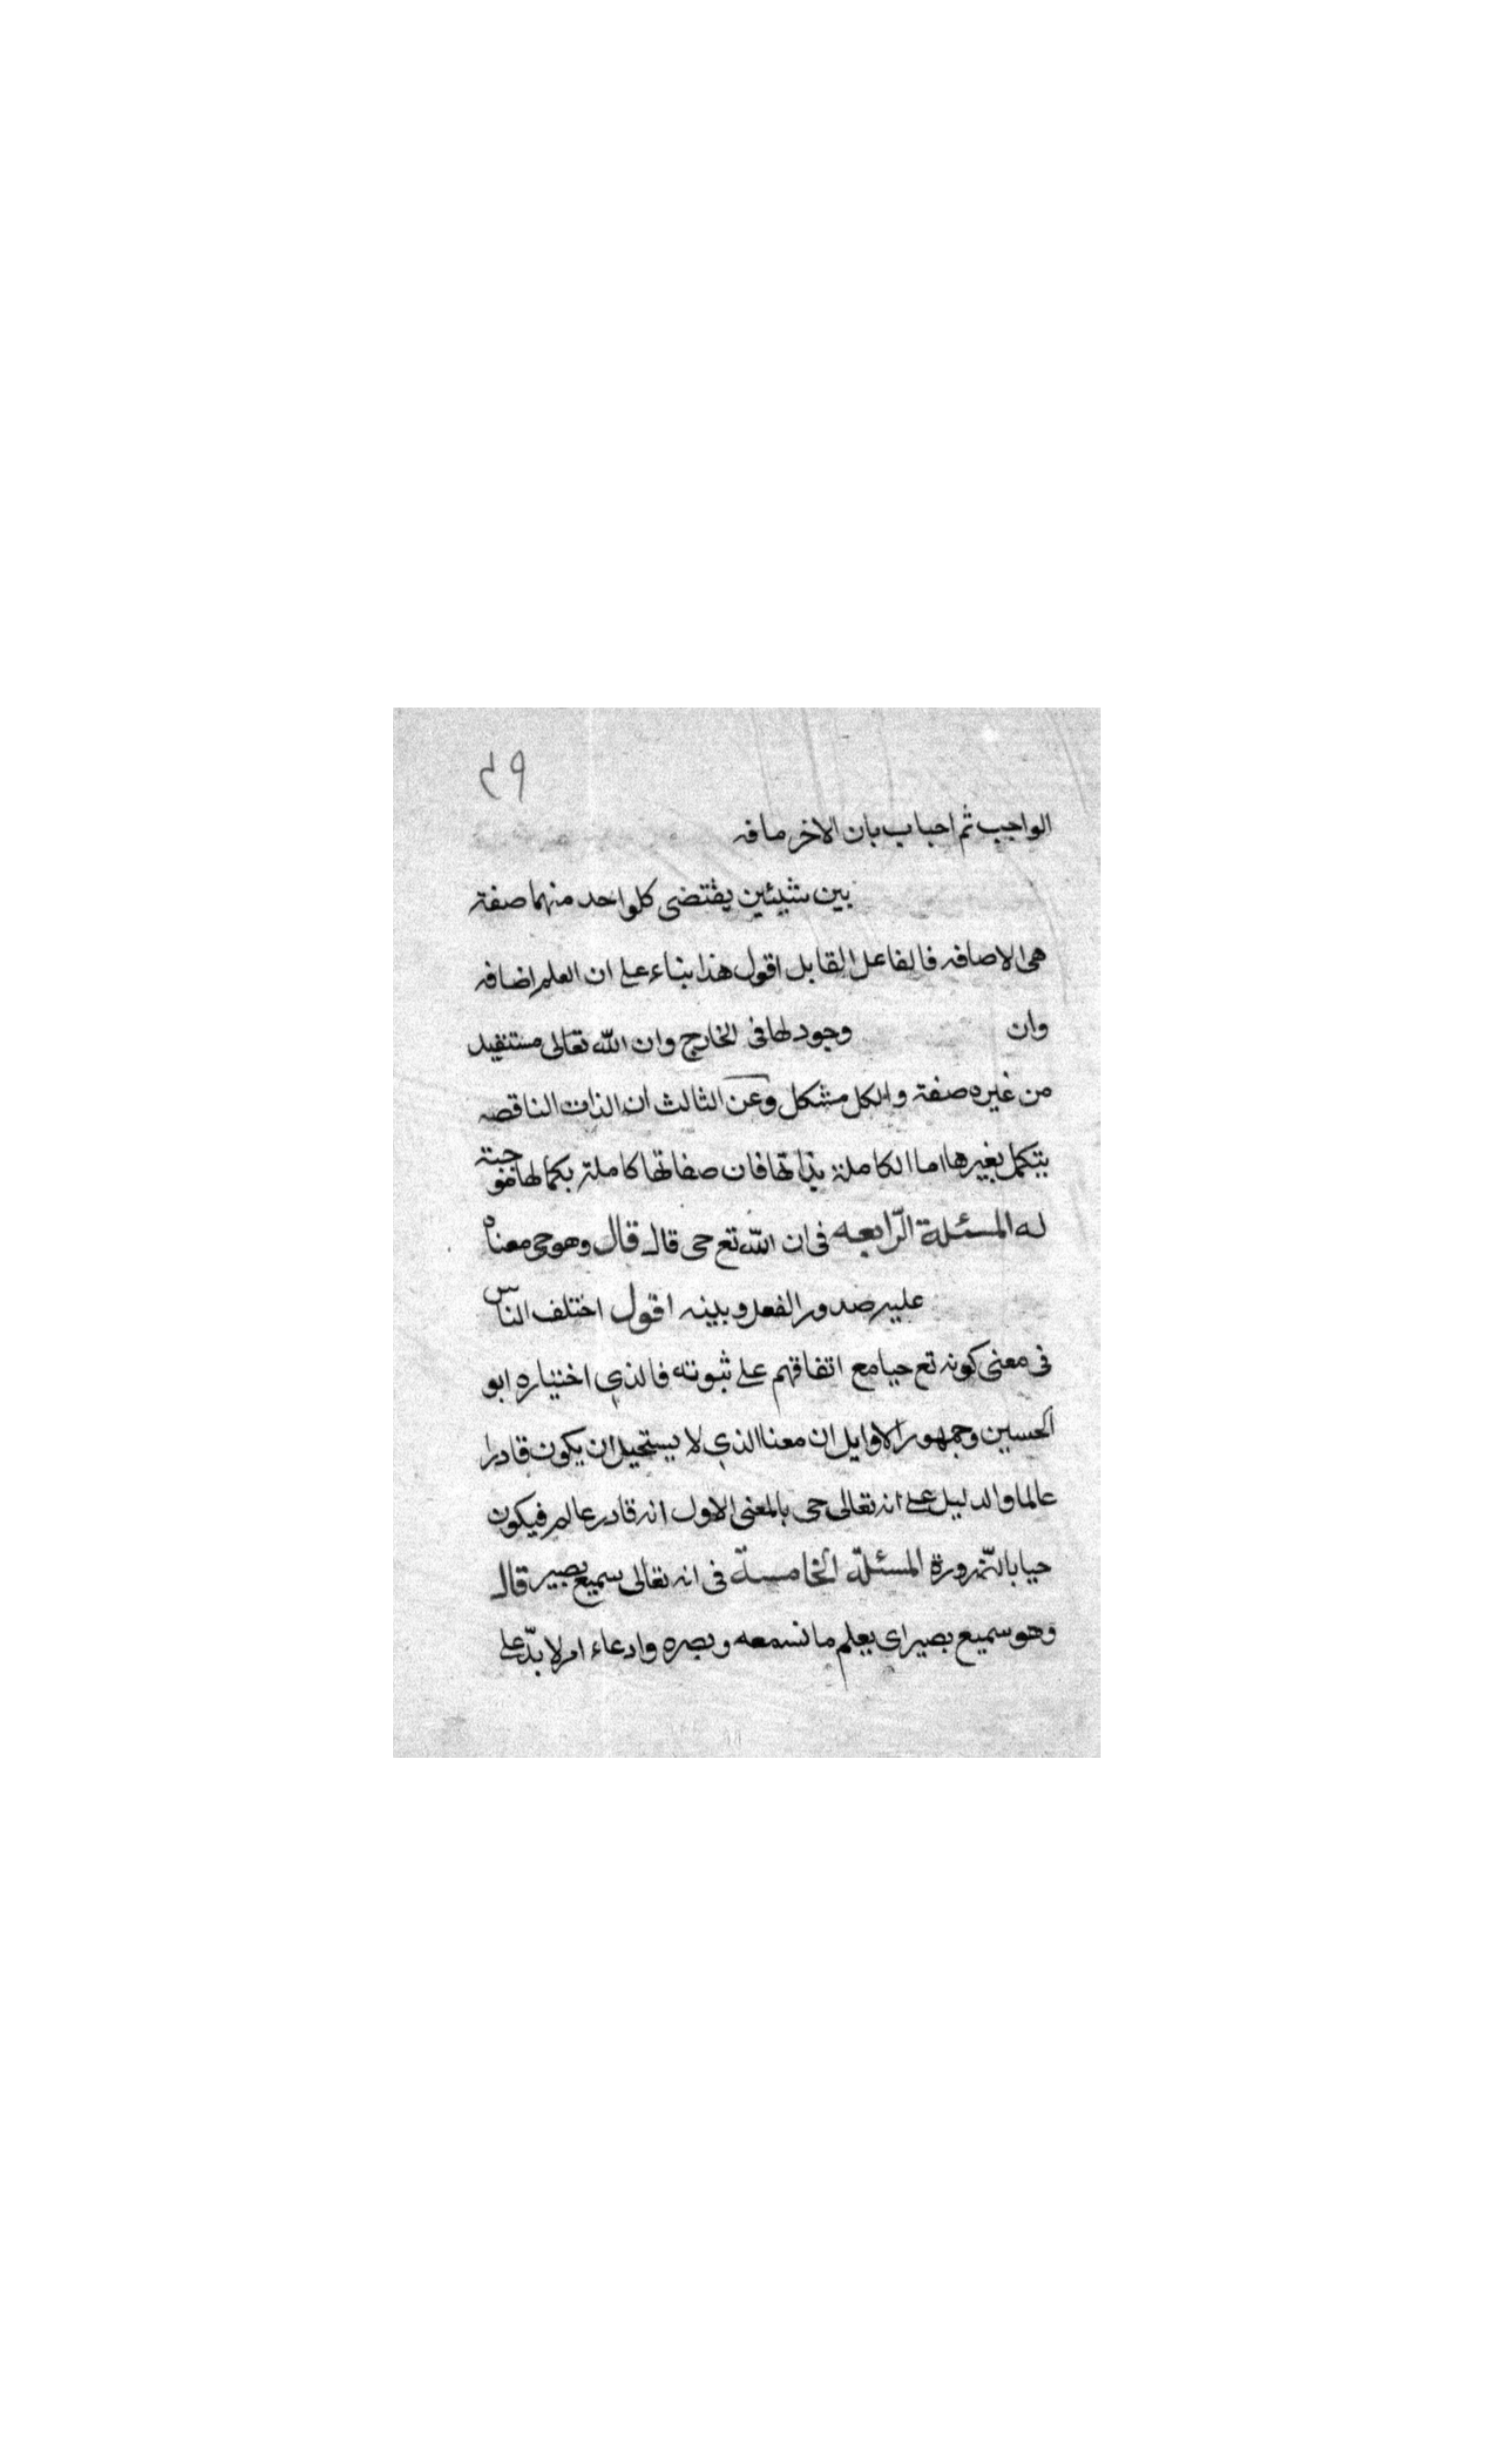 ٤٩
الواجب ثم احباب بان الاخر مافه
بين شيئين يقتضى كلواحد منهما صفة
هى الاصافه فالفاعل القابل اقول هذا بناء على ان العلم اضافه
وان وجود لها فى الخارج وان الله تعالى مستفيد
من غيره صفة والكل مشكل وعن الثالث ان الذات الناقصه
يتكمل بغيرها اما الكاملة بذاتها فان صفاتها كاملة بكمالها موجبته
له المسئلة الرّابعه فى ان الله تع حى قال قال وهو حى معناه
عليه صدور الفعل وبينه اقول اختلف الناس
فى معنى كونه تع حيا مع اتفاقهم على ثبوته فالذي اختياره ابو
الحسين وجمهور الاوايل ان معنا الذي لا يستحيل ان يكون قادرا
عالما والدليل على انه تعالى حى بالمعنى الاول انه قادر عالم فيكون
حيا بالضّرورة المسئلة الخامسة فى انه تعالى سميع بصير قال
وهو سميع بصير اى يعلم ما نسمعه وبصره وادعاء امر لا بدّ على